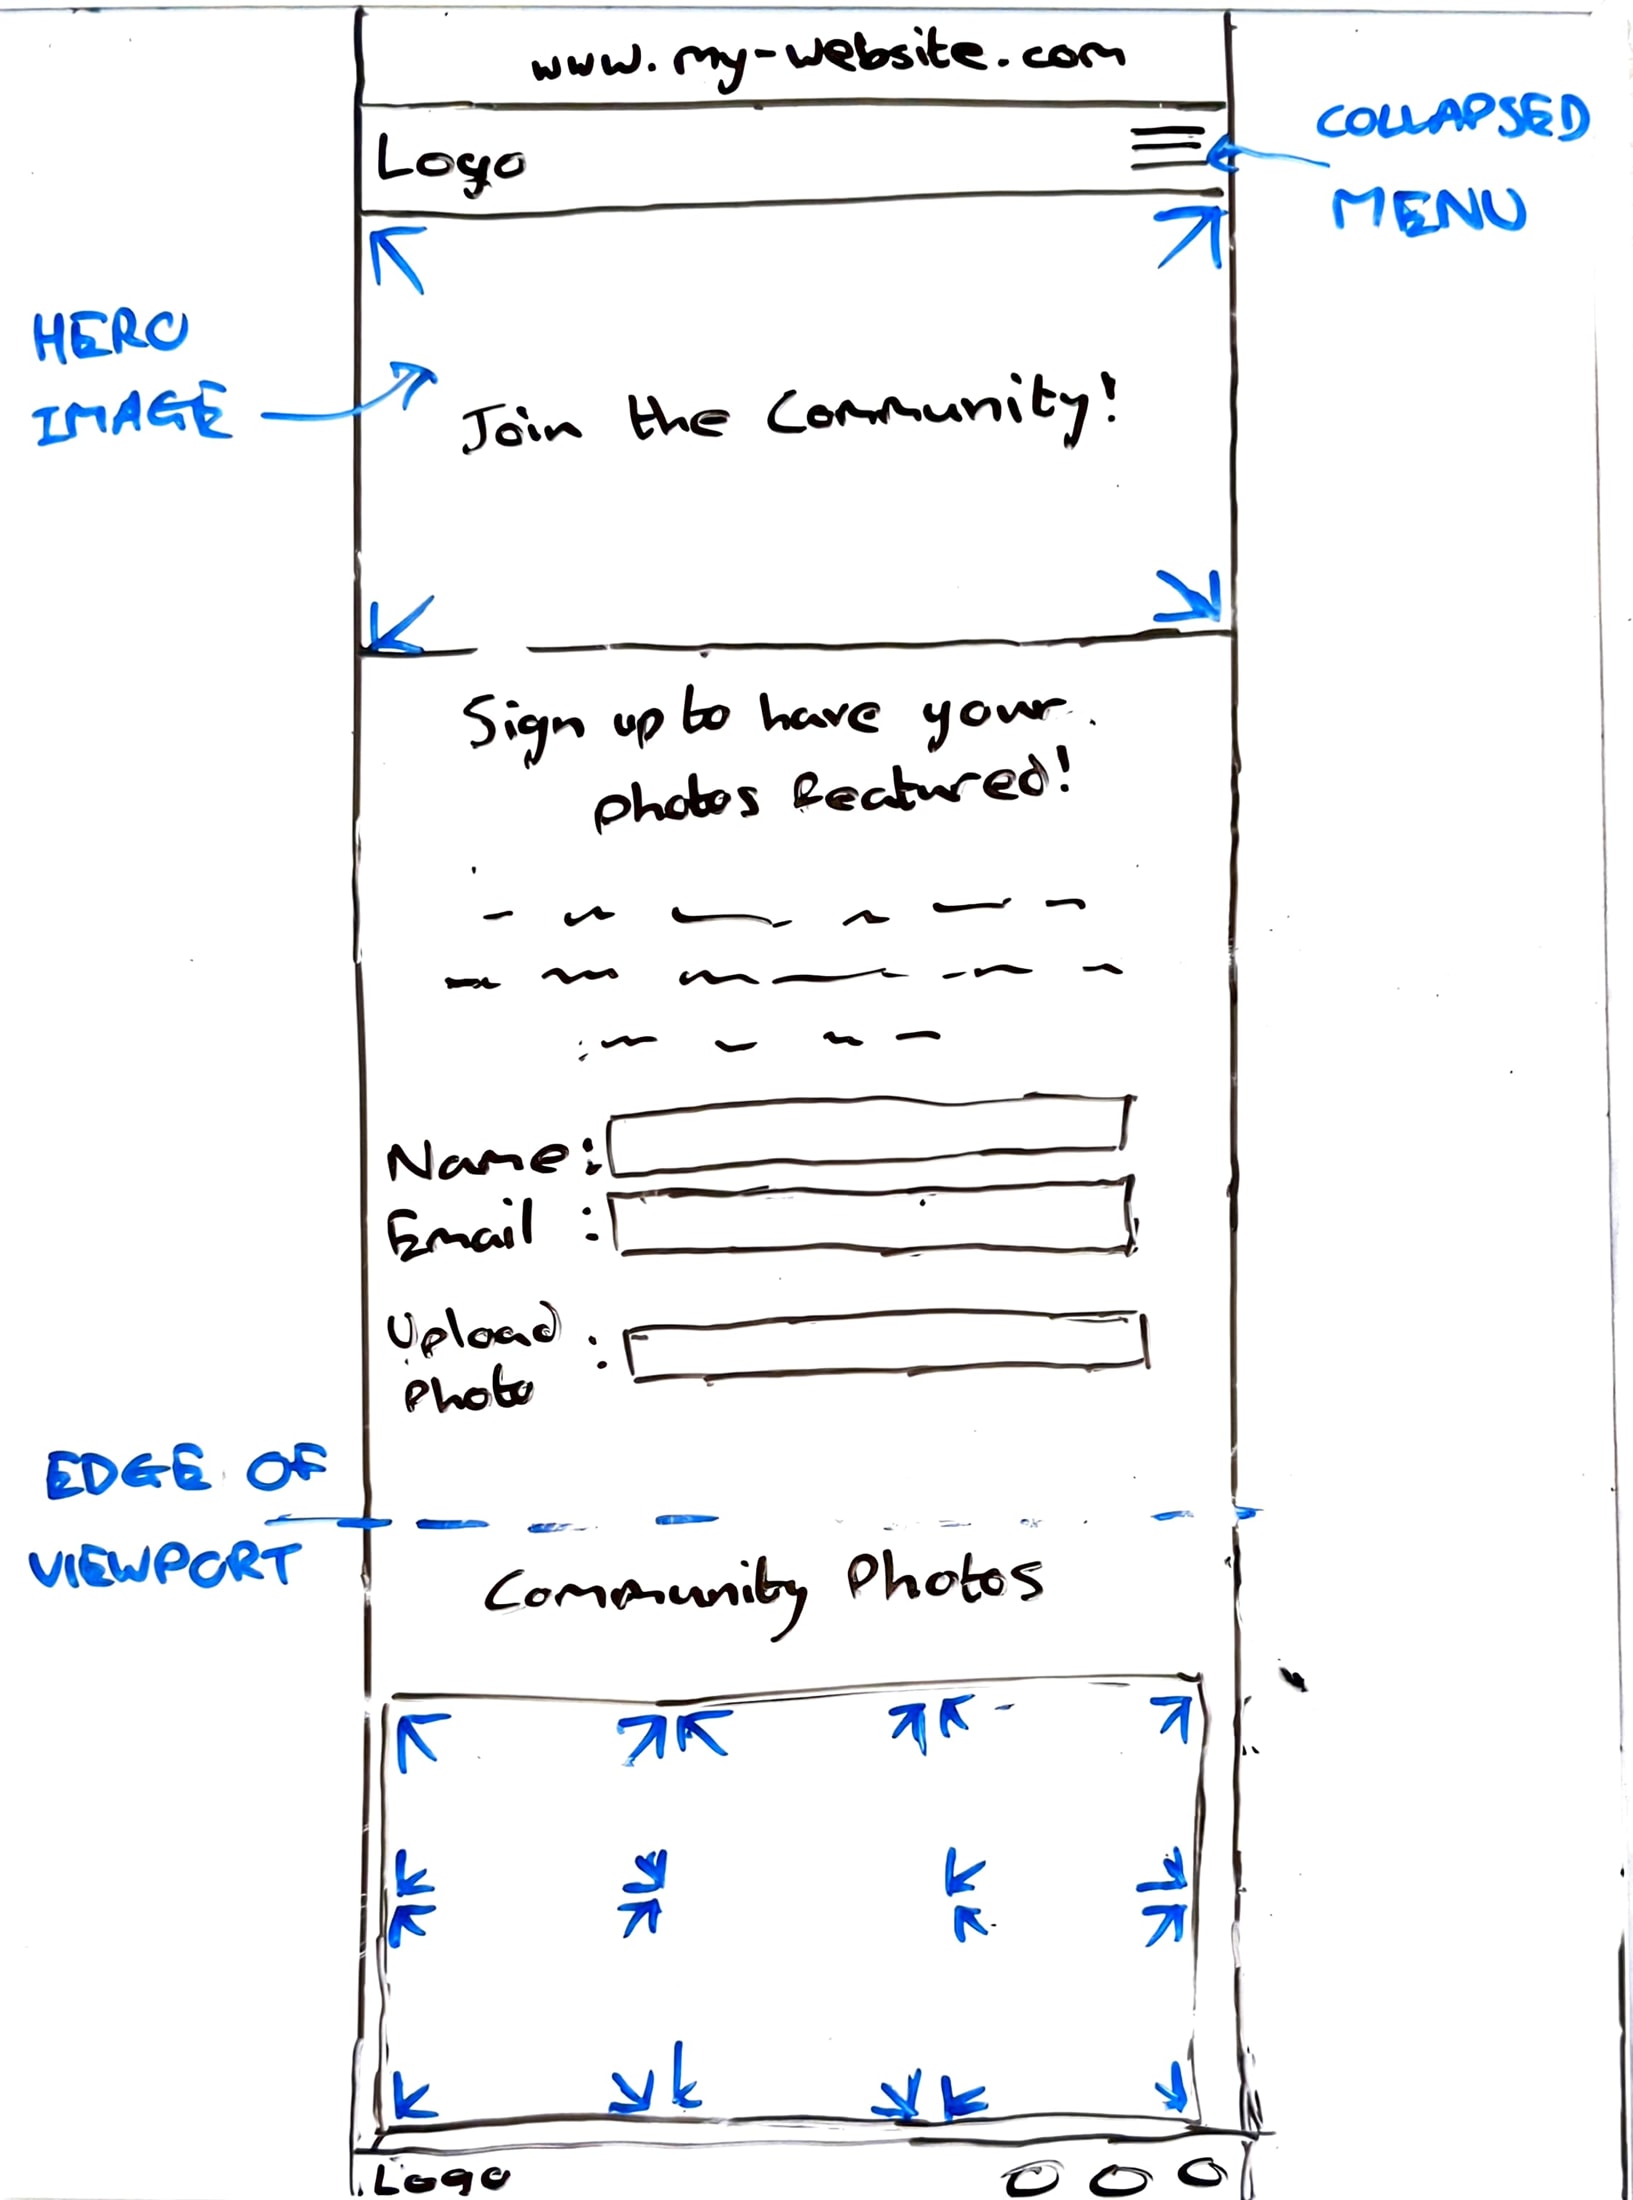 www.my-website.com
Logo
COLLAPSED
MENU
HERO
IMAGE
Join the Community!
Sign up to have your
photos featured!
Name:
Email :
Upload :
Photo
EDGE OF
VIEWPORT
Community Photos
Logo